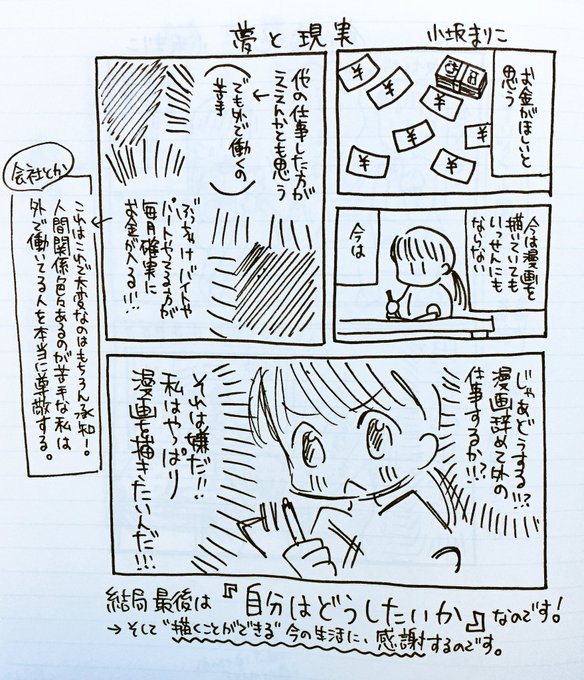 夢と現実
小坂まりこ
お金がほしいと
思う
¥
¥
¥
¥
¥
¥
¥
今は漫画を
描いていても
いっせんにも
ならない
今は
他の仕事した方が
ええんかとも思う
(でも外で働くの
苦手)
ぶっちゃけバイトや
パートやってる方が
毎月確実に
お金が入る!!!
会社とか
これはこれで大変なのはもちろん承知!
人間関係色々あるのが苦手な私は
外で働いてる人を本当に尊敬する。
じゃあどうする!!?
漫画辞めて外の
仕事するか!?!?
それは嫌だ!!
私はやっぱり
漫画を描きたいんだ!!!
結局最後は『自分はどうしたいか』なのです!
→そして"描くことができる"今の生活に、感謝するのです。